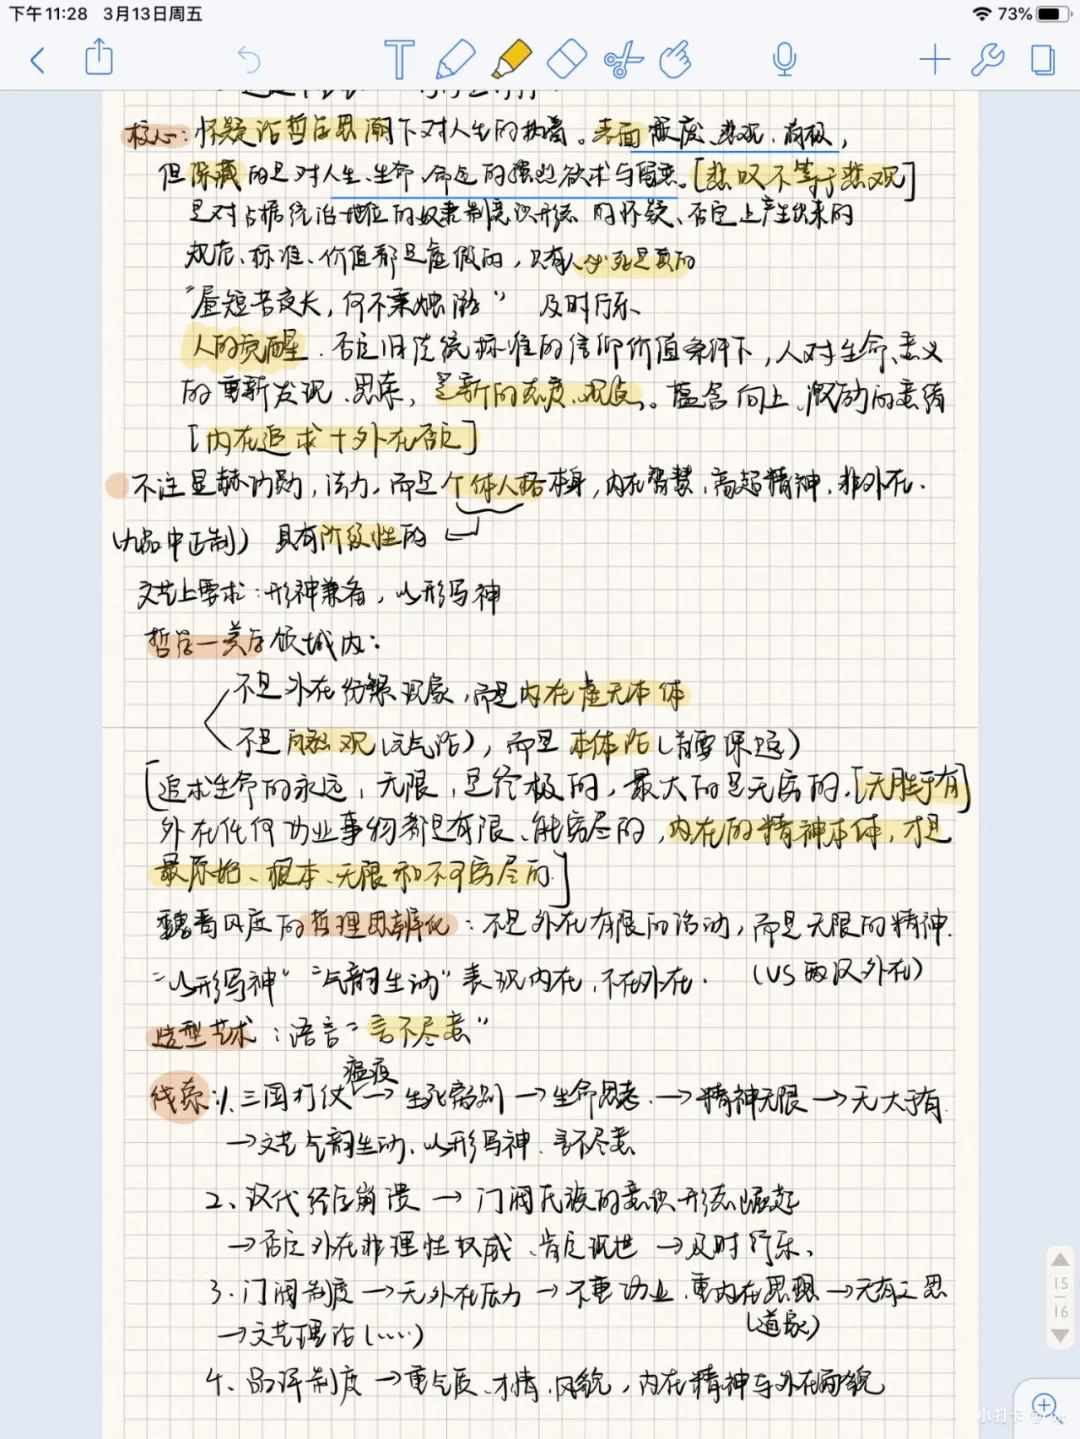 下午11:28 3月13日周五
73%
核心：怀疑论哲学思潮下对人生的执着。表面颓废、悲观、消极，
但深藏的是对人生、生命、命运的强烈欲求与留恋。[悲叹不等于悲观]
是对占据统治地位的奴隶制意识形态的怀疑、否定上产生出来的
规范、标准、价值都是虚假的，只有人必死是真的
“昼短苦夜长，何不秉烛游” 及时行乐、
人的觉醒．否定旧传统标准的信仰价值条件下，人对生命、意义
的重新发现、思索，是新的态度、观点。蕴含向上、激励的意绪
[内在追求+外在否定]
不注显赫功勋，法力，而是个体人格本身，内在智慧，高超精神，非外在．
(九品中正制) 具有阶级性的
文艺上要求：形神兼备，以形写神
哲学—美学领域内：
不是外在纷繁现象，而是内在虚无本体
不是自然观(元气论)，而是本体论(首要保运)
[追求生命的永远，无限，是终极的，最大的是无穷的，[无胜于有]
外在任何功业事物都是有限、能穷尽的，内在的精神本体，才是
最原始、根本、无限和不可穷尽的]
魏晋风度的哲理思辨化：不是外在有限的活动，而是无限的精神．
“以形写神”“气韵生动”表现内在，不在外在．(VS两汉外在)
造型艺术：语言“言不尽意”
瘟疫
线索：1、三国打仗→生死离别→生命思考．→精神无限→无大于有
→文艺气韵生动，以形写神、言不尽意
2、汉代经学崩溃→门阀氏族的意识形态崛起
→否定外在非理性权威、肯定现世→及时行乐、
3、门阀制度→无外在压力→不重功业，重内在思想→无有之思
(道家)
→文艺理论(……)
4、品评制度→重气质、才情、风貌，内在精神与外在面貌
15
16
小打卡